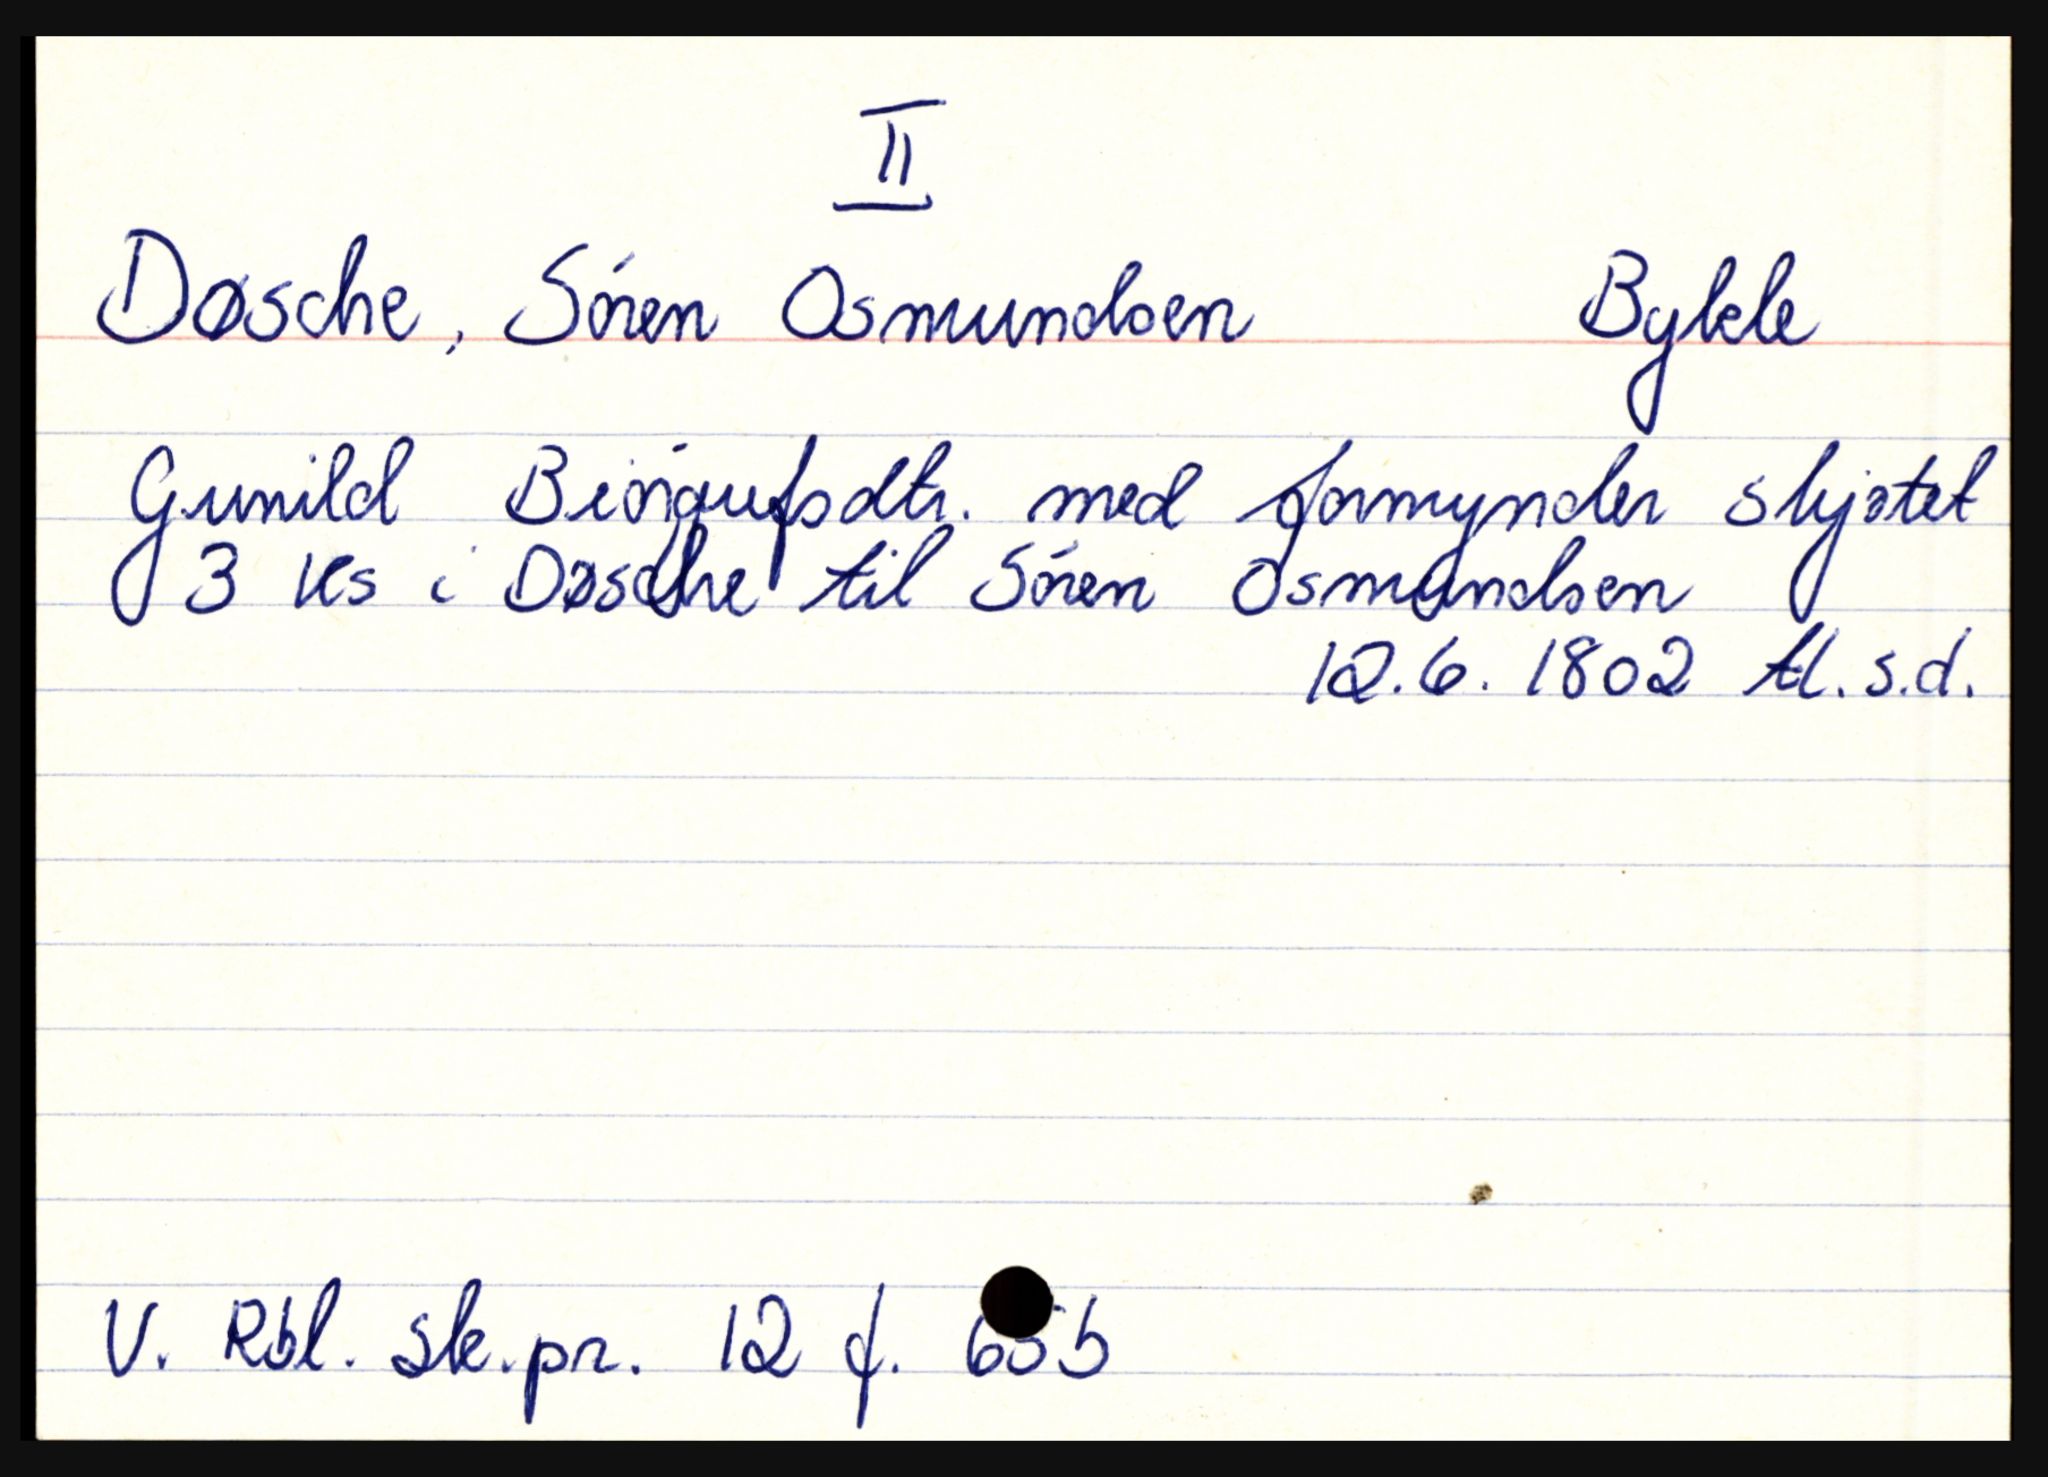 II
Døsche, Sören Osmundsen Bykle
Gunild Biörgufsdtr. med formynder skjøtet
3 ks i Døsche til Sören Osmundsen
12.6. 1802 tl. s.d.
V. Rbl. sk.pr. 12 f. 65b